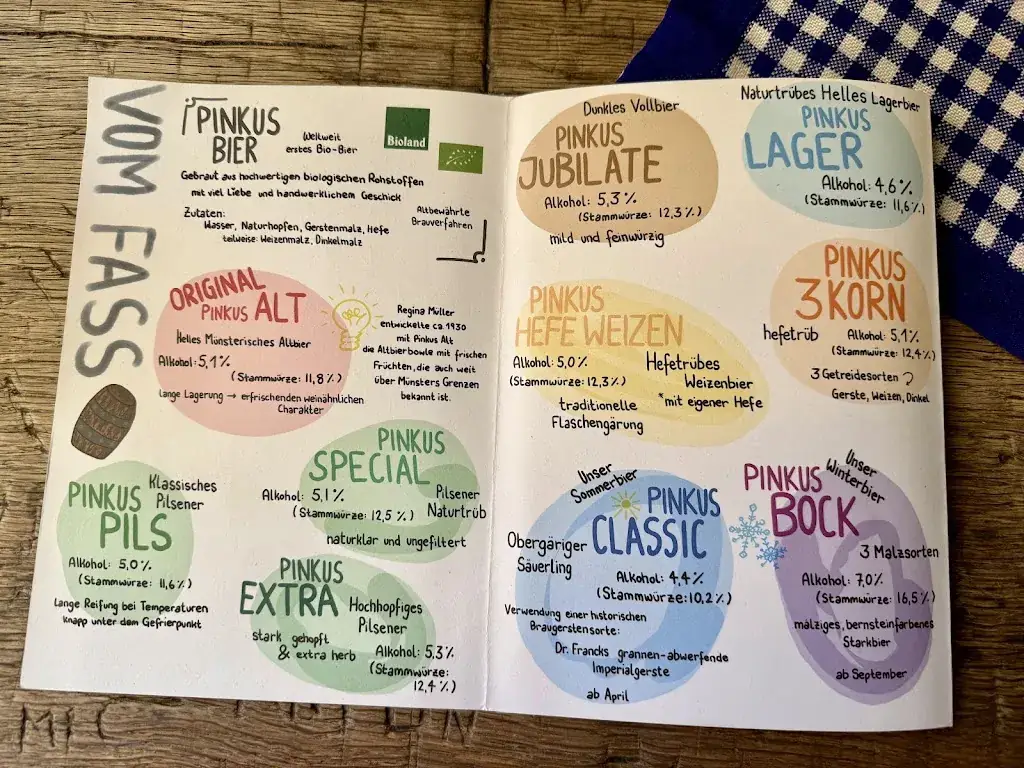 VOM FASS
PINKUS
BIER
Weltweit
erstes Bio-Bier
Bioland
Gebraut aus hochwertigen biologischen Rohstoffen
mit viel Liebe und handwerklichem Geschick
Zutaten:
Wasser, Naturhopfen, Gerstenmalz, Hefe
teilweise: Weizenmalz, Dinkelmalz
Altbewährte
Brauverfahren
ORIGINAL
PINKUS ALT
Helles Münsterisches Altbier
Alkohol: 5,1%
(Stammwürze: 11,8%)
lange Lagerung → erfrischenden weinähnlichen
Charakter
Regina Müller
entwickelte ca. 1930
mit Pinkus Alt
die Altbierbowle mit frischen
Früchten, die auch weit
über Münsters Grenzen
bekannt ist.
PINKUS
PILS
Klassisches
Pilsener
Alkohol: 5,0%
(Stammwürze: 11,6%)
Lange Reifung bei Temperaturen
knapp unter dem Gefrierpunkt
PINKUS
SPECIAL
Alkohol: 5,1%
(Stammwürze: 12,5 %)
Pilsener
Naturtrüb
naturklar und ungefiltert
PINKUS
EXTRA
Hochhopfiges
Pilsener
stark gehopft
& extra herb
Alkohol: 5,3%
(Stammwürze:
12,4%)
Dunkles Vollbier
PINKUS
JUBILATE
Alkohol: 5,3%
(Stammwürze: 12,3%)
mild und feinwürzig
Naturtrübes Helles Lagerbier
PINKUS
LAGER
Alkohol: 4,6%
(Stammwürze: 11,6%)
PINKUS
HEFE WEIZEN
Alkohol: 5,0%
(Stammwürze: 12,3%)
Hefetrübes
Weizenbier
*mit eigener Hefe
traditionelle
Flaschengärung
PINKUS
3KORN
hefetrüb
Alkohol: 5,1%
(Stammwürze: 12,4%)
3 Getreidesorten
Gerste, Weizen, Dinkel
Unser
Sommerbier
PINKUS
CLASSIC
Obergäriger
Säuerling
Alkohol: 4,4%
(Stammwürze: 10,2%)
Verwendung einer historischen
Braugerstensorte:
Dr. Francks grannen-abwerfende
Imperialgerste
ab April
Unser
Winterbier
PINKUS
BOCK
3 Malzsorten
Alkohol: 7,0%
(Stammwürze: 16,5%)
malziges, bernsteinfarbenes
Starkbier
ab September